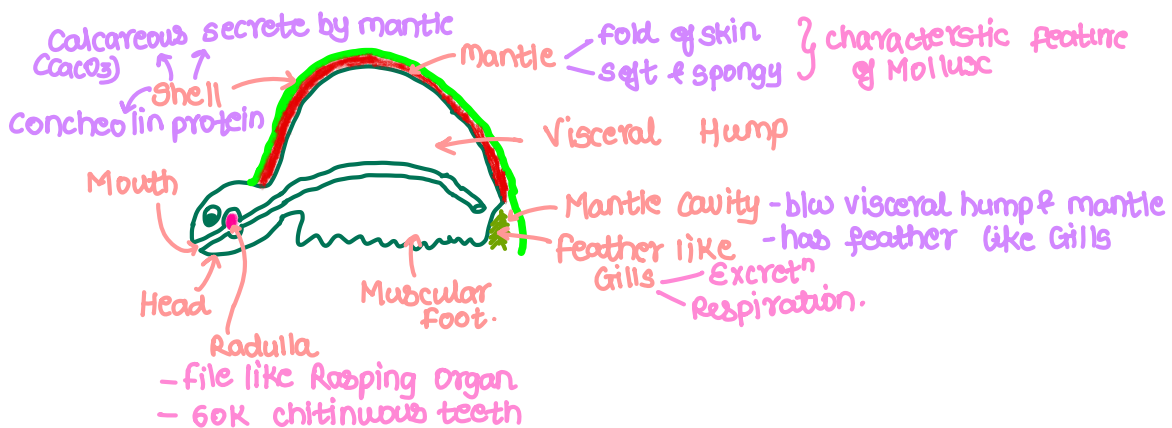 Calcareous secrete by mantle
(CaCO3)
Shell
Concheolin protein
Mantle
fold of skin
soft & spongy
characterstic feature
of Mollusc
Visceral Hump
Mouth
Mantle Cavity - b/w visceral hump & mantle
- has feather like Gills
feather like
Gills
Excretⁿ
Respiration.
Head
Muscular
foot.
Radulla
- file like Rasping Organ
- 60K chitinuous teeth